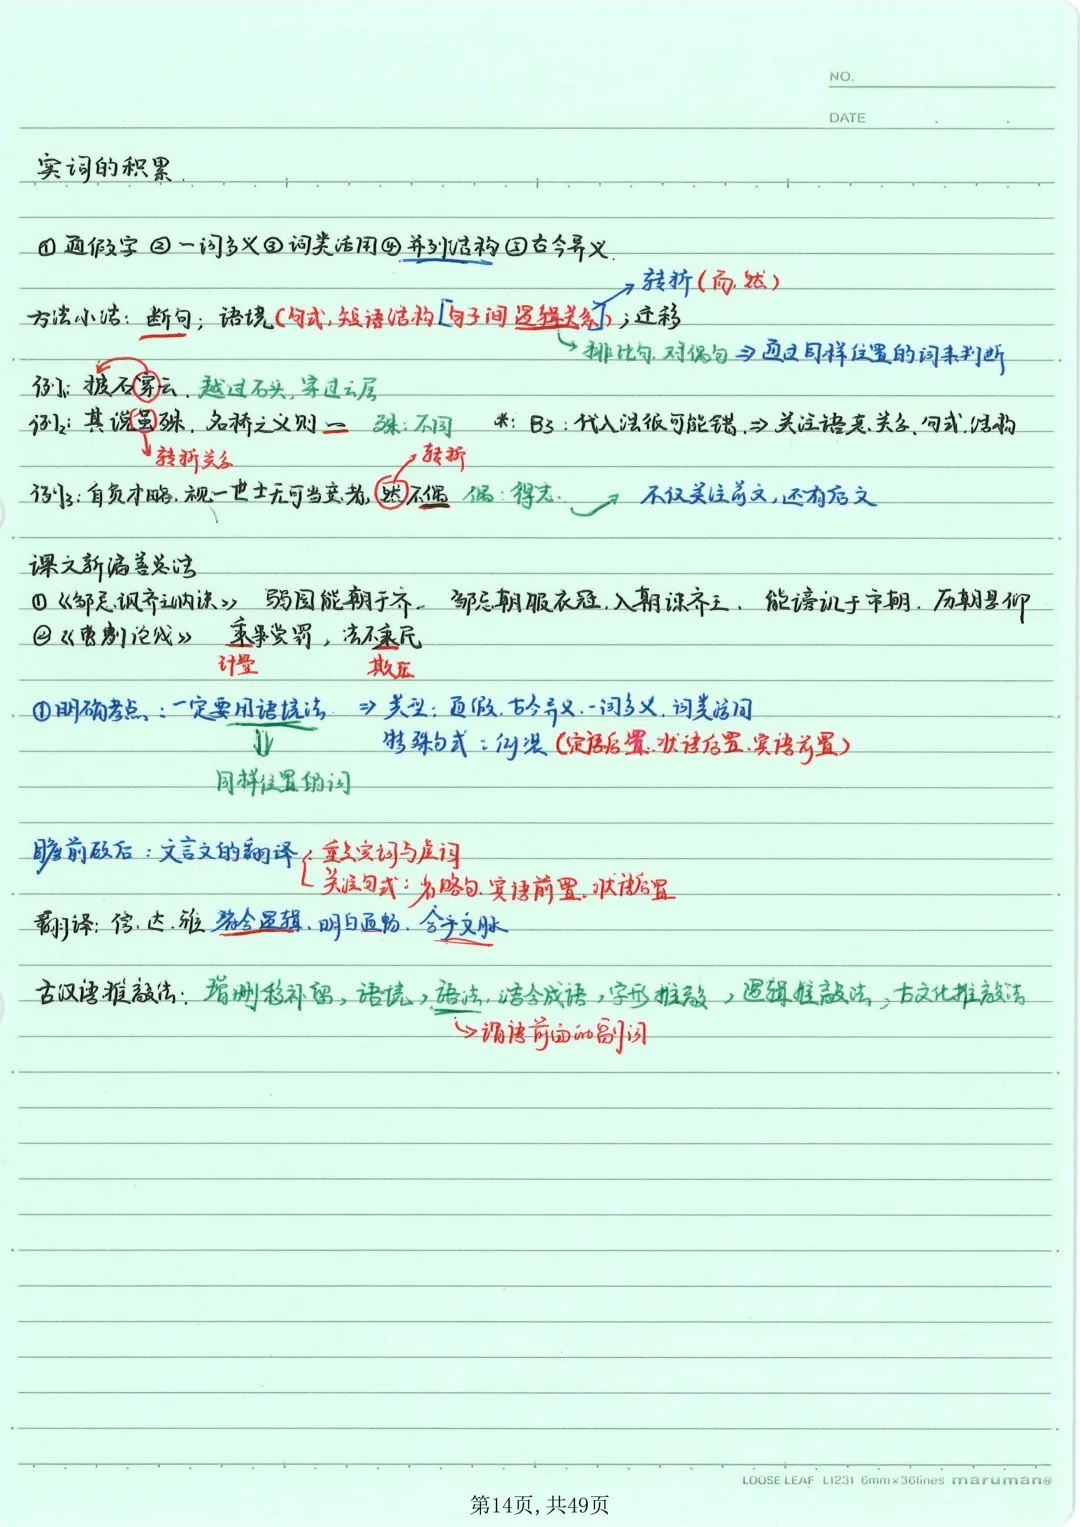 NO.
DATE
实词的积累.
① 通假字 ② 一词多义 ③ 词类活用 ④ 并列结构 ⑤ 古今异义.
转折(而.然)
方法小结: 断句; 语境(句式,短语结构[句子间逻辑关系]); 迁移
排比句.对偶句⇒通过同样位置的词来判断
例1: 披石穿云. 越过石头,穿过云层
例2: 其说虽殊, 名桥之义则一 殊:不同 *: B3:代入法很可能错.⇒关注语意.关系.句式.结构
转折关系 转折
例3: 自负才略.视一世士无可当意者,然不偶 偶:得志. 不仅关注前文,还有后文
课文新编善总结
①《邹忌讽齐王纳谏》 弱国能朝于齐. 邹忌朝服衣冠.入朝谏齐王. 能谤讥于市朝.
②《曹刿论战》 法不乘民
计量 欺压
①明确考点:一定要用语境法 ⇒ 类型:通假.古今异义.一词多义.词类活用
特殊句式:倒装(定语后置.状语后置.宾语前置)
同样位置的词
瞻前顾后:文言文的翻译 重点实词与虚词
关注句式:省略句.宾语前置.状语后置
翻译:信.达.雅 符合逻辑.明白通畅.合乎文脉
古汉语推敲法: 增删移补留, 语境, 语法.结合成语,字形推敲,逻辑推敲法,古文化推敲法
谓语前面的副词
LOOSE LEAF L1231 6mm×36lines maruman®
第14页,共49页